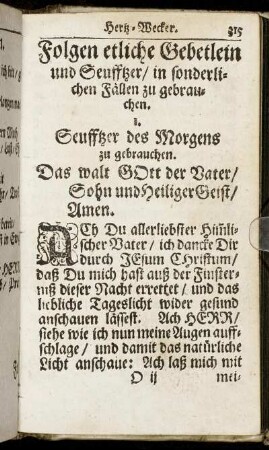 Hertz-Wecker. 315
Folgen etliche Gebetlein
und Seufftzer/ in sonderli-
chen Fällen zu gebrau-
chen.
1.
Seufftzer des Morgens
zu gebrauchen.
Das walt GOtt der Vater/
Sohn und Heiliger Geist/
Amen.
ACh Du allerliebster Him̃li-
scher Vater/ ich dancke Dir
durch JEsum CHristum/
daß Du mich hast auß der Finster-
niß dieser Nacht errettet/ und das
liebliche Tageslicht wider gesund
anschauen lässest. Ach HERR/
siehe wie ich nun meine Augen auff-
schlage/ und damit das natürliche
Licht anschaue: Ach laß mich mit
O ij mei-